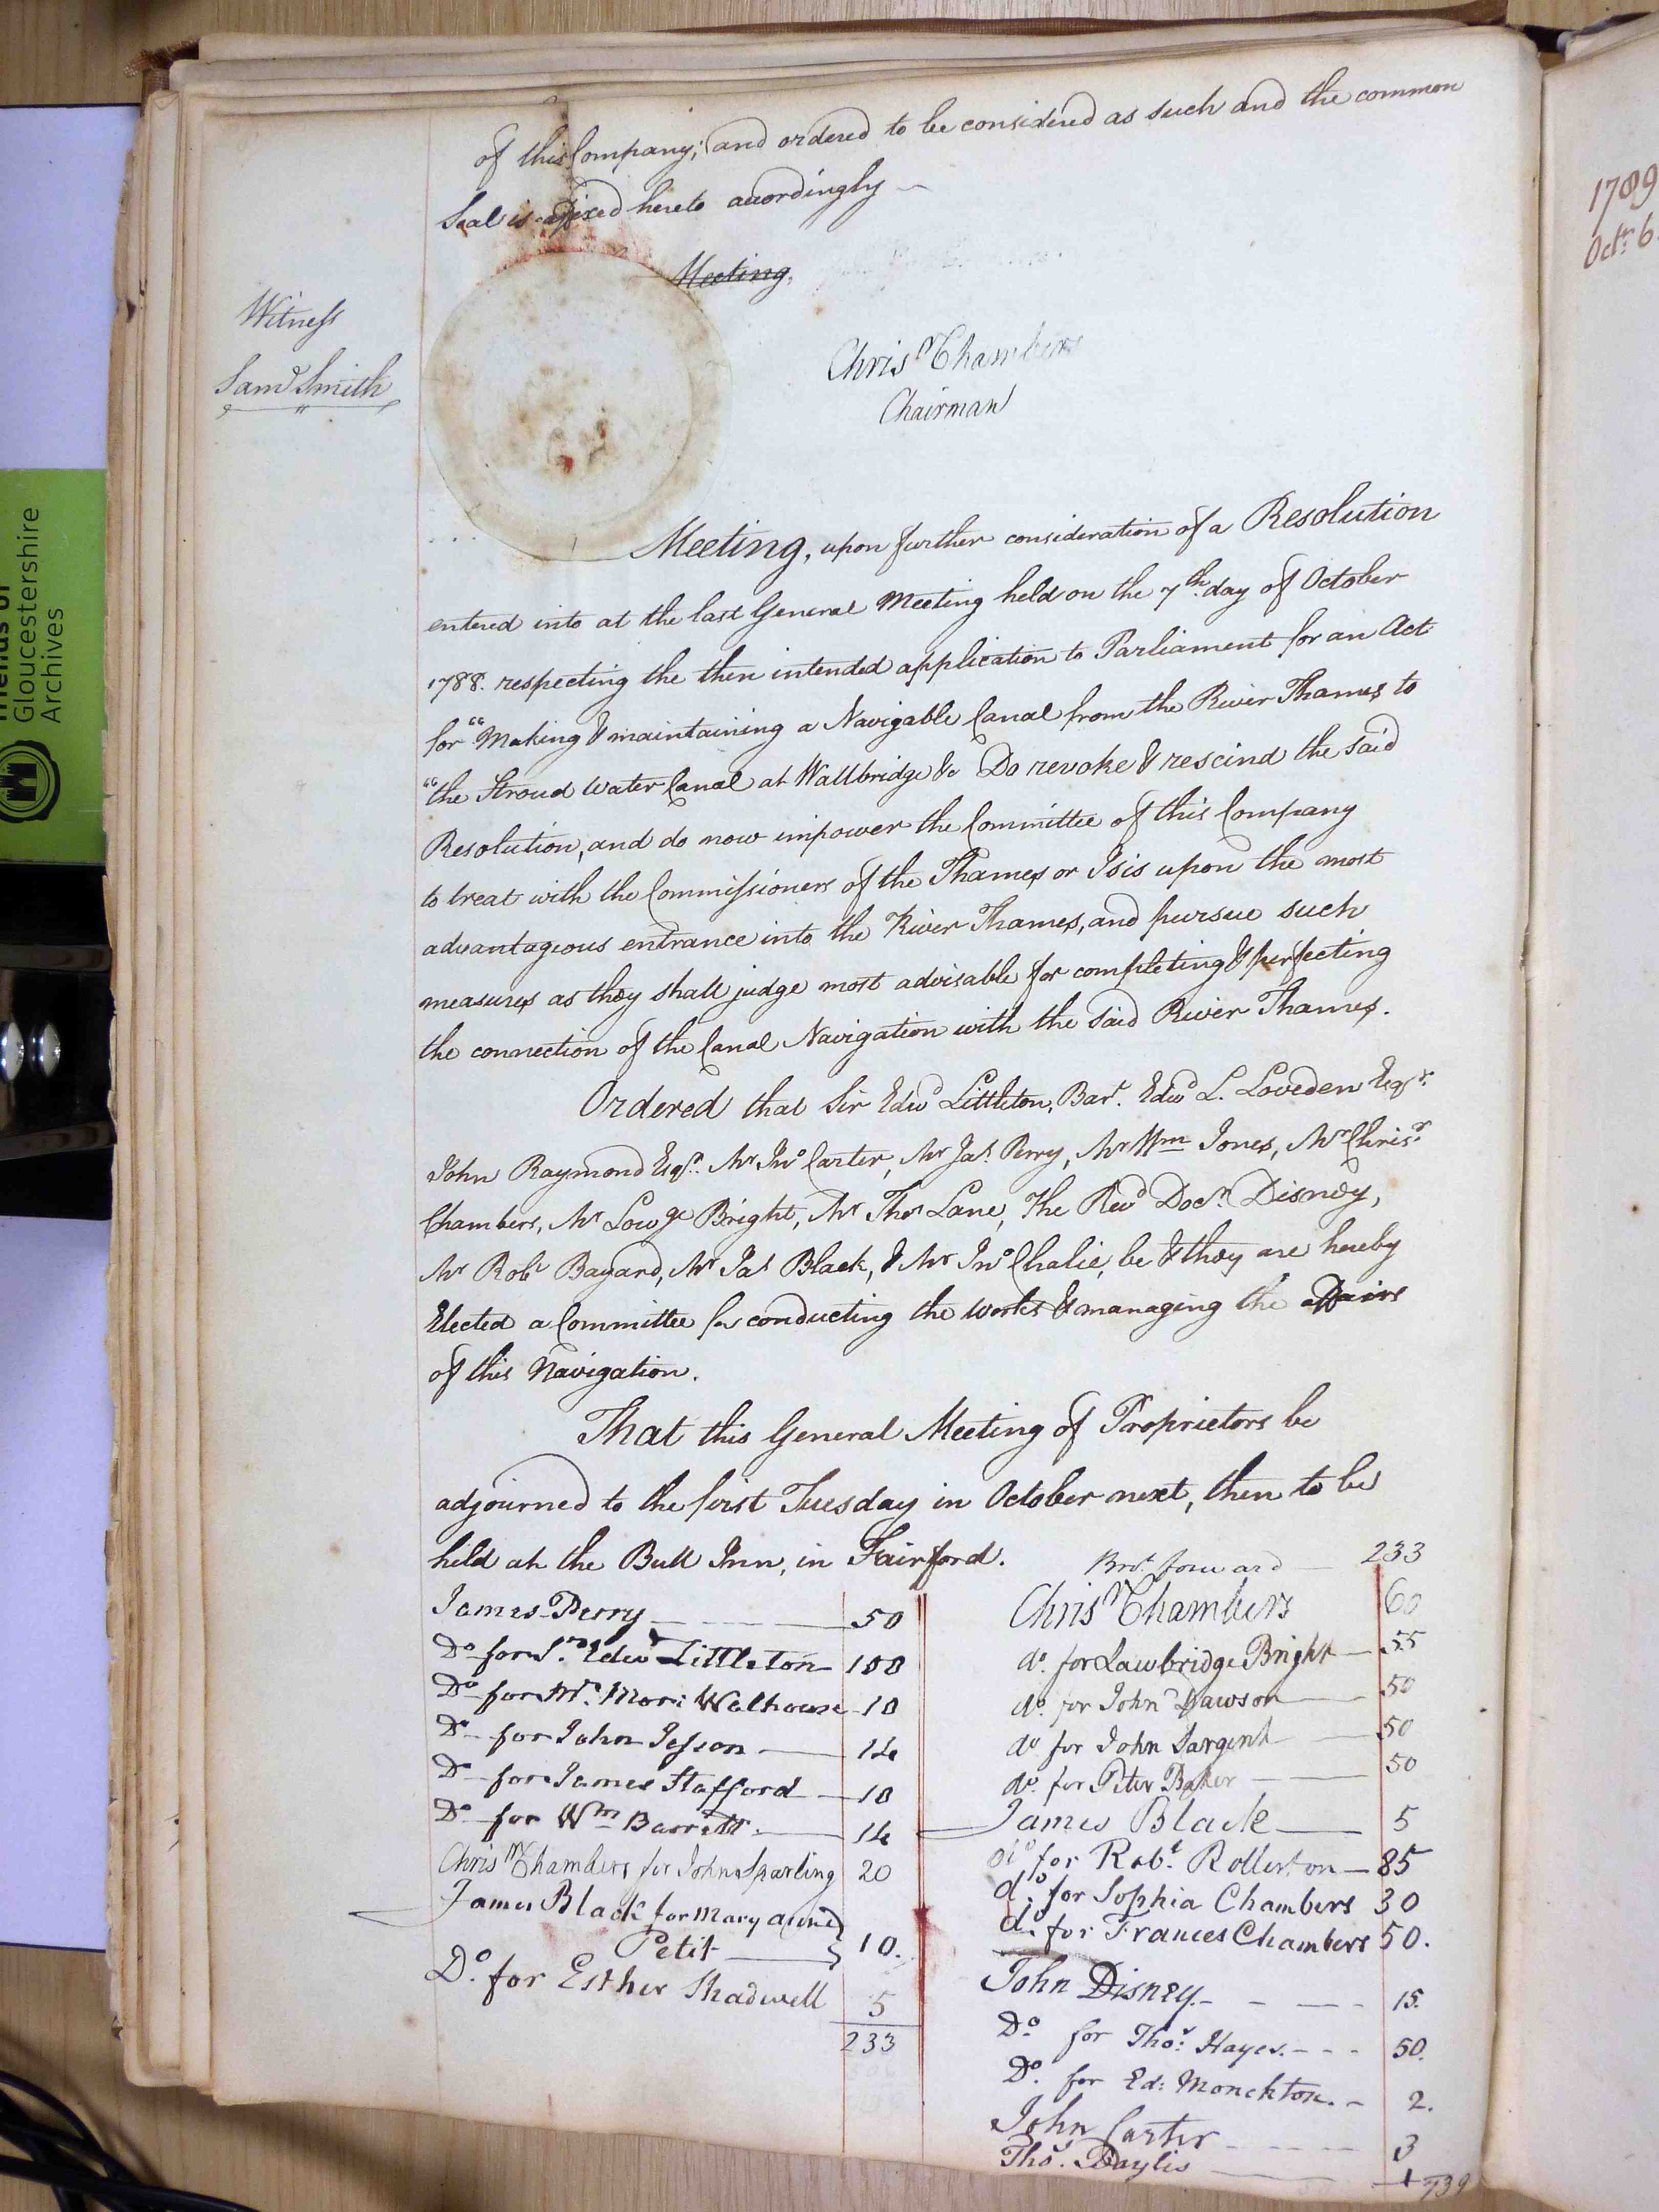 of this Company; and ordered to be considered as such and the common
Seal is affixed hereto accordingly
Meeting,
Witness
Sam.l Smith
Chris.r Chambers
Chairman
Meeting, upon further consideration of a Resolution
entered into at the last General Meeting held on the 7th. day of October
1788. respecting the then intended application to Parliament for an Act
for "Making & maintaining a Navigable Canal from the River Thames to
"the Stroud water Canal at Wallbridge &c Do revoke & rescind the said
Resolution, and do now impower the Committee of this Company
to treat with the Commissioners of the Thames or Isis upon the most
advantageous entrance into the River Thames, and pursue such
measures as they shall judge most advisable for completing & perfecting
the connection of the Canal Navigation with the said River Thames.
Ordered that Sir Edwd Littleton, Bart. Edwd L. Loveden Esqr.
John Raymond Esqr. Mr Jno Carter, Mr Jas. Perry, Mr Wm Jones, Mr Chrisr.
Chambers, Mr Lowge Bright, Mr Thos Lane, The Revd Docr. Disney,
Mr Robt Bayard, Mr Jas Black, & Mr Jno Chalie, be & they are hereby
Elected a Committee for conducting the works & managing the affairs
of this Navigation.
That this General Meeting of Proprietors be
adjourned to the first Tuesday in October next, then to be
held at the Bull Inn, in Fairford.
James Perry 50
Do for Sr. Edwd Littleton 100
Do for Mr. Mori: Walhouse 10
Do for John Jesson 14
Do for James Stafford 10
Do for Wm Barrett 14
Chrisr Chambers for John Sparling 20
James Black for Mary anne
Petit 10.
Do. for Esther Shadwell 5
233
Brot forward 233
Chrisr Chambers 60
do. for Lawbridge Bright 55
do. for John Dawson 50
do for John Sargent 50
do. for Peter Baker 50
James Black 5
do for Robt. Rolleston 85
do. for Sophia Chambers 30
do. for Frances Chambers 50.
John Disney. 15.
Do. for Thos: Hayes. 50.
Do. for Ed: Monckton. 2.
John Carter 3
Thos. Baylis 1
739
1789
Octr. 6.
Gloucestershire
Archives